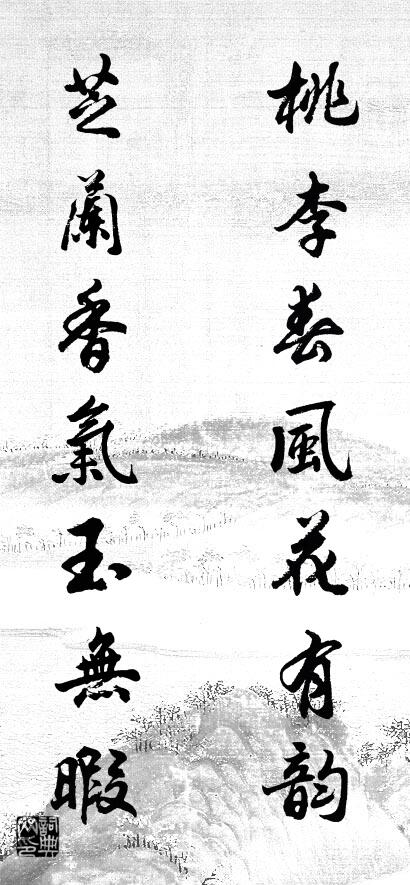 桃李春風花有韵
芝蘭香氣玉無暇